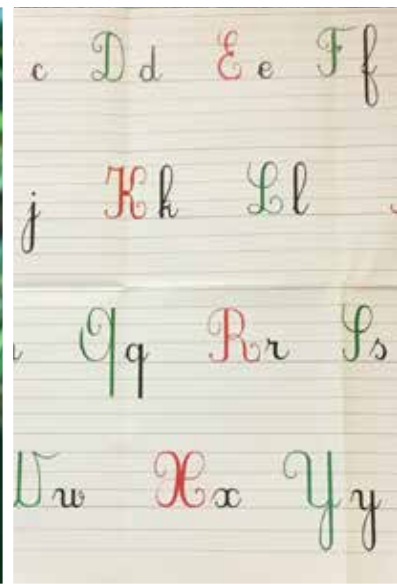 c D d E e F f
j K k L l
Q q R r S s
W w X x Y y